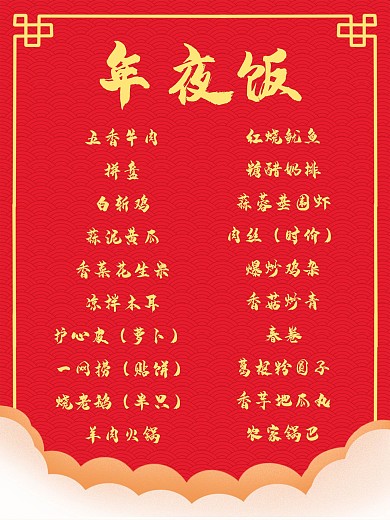 年夜饭
五香牛肉
红烧鱿鱼
拼盘
糖醋奶排
白斩鸡
蒜蓉基围虾
蒜泥黄瓜
肉丝（时价）
香菜花生米
爆炒鸡杂
凉拌木耳
香菇炒青
护心皮（萝卜）
春卷
一网捞（贴饼）
葛根粉圆子
烧老鹅（半只）
香芋地瓜丸
羊肉火锅
农家锅巴